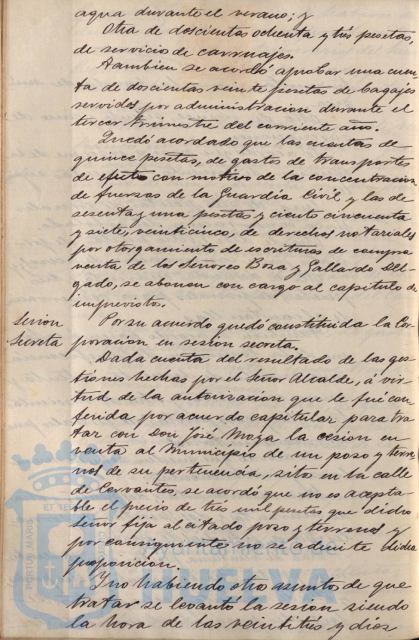 agua durante el verano; y
Otra de doscientas ochenta y trés pesetas,
de servicio de carruajes.
Tambien se acordó aprobar una cuen
ta de doscientas veinte pesetas de bagajes
servidos por administracion durante el
tercer trimestre del corriente año.
Quedó acordado que las cuentas de
quince pesetas, de gastos de transportes
de efectos con motivo de la concentracion
de fuerzas de la Guardia Civil y las de
sesenta y una pesetas y ciento cincuenta
y siete, veinticinco, de derechos notariales
por otorgamiento de escrituras de compra
venta de los Señores Boza y Gallardo Del
gado, se abonen con cargo al capitulo de
imprevistos.
Sesion Secreta
Por su acuerdo quedó constituida la Cor
poracion en sesion secreta.
Dada cuenta del resultado de las ges
tiones hechas por el Señor Alcalde, á vir
tud de la autorizacion que le fué con
ferida por acuerdo capitular para tra
tar con Don José Moya la cesion en
venta al Municipio de un pozo y terre
nos de su pertenencia, sito en la calle
de Cervantes, se acordó que no es acepta
ble el precio de tres mil pesetas que dicho
Señor fija al citado pozo y terrenos y
por consiguiente no se admite dicha
proposicion.
Y no habiendo otro asunto de que
tratar se levantó la sesion siendo
la hora de las veintitrés y diez
PORTUS MARIS
ET TER
Ayuntamiento de
HUELVA